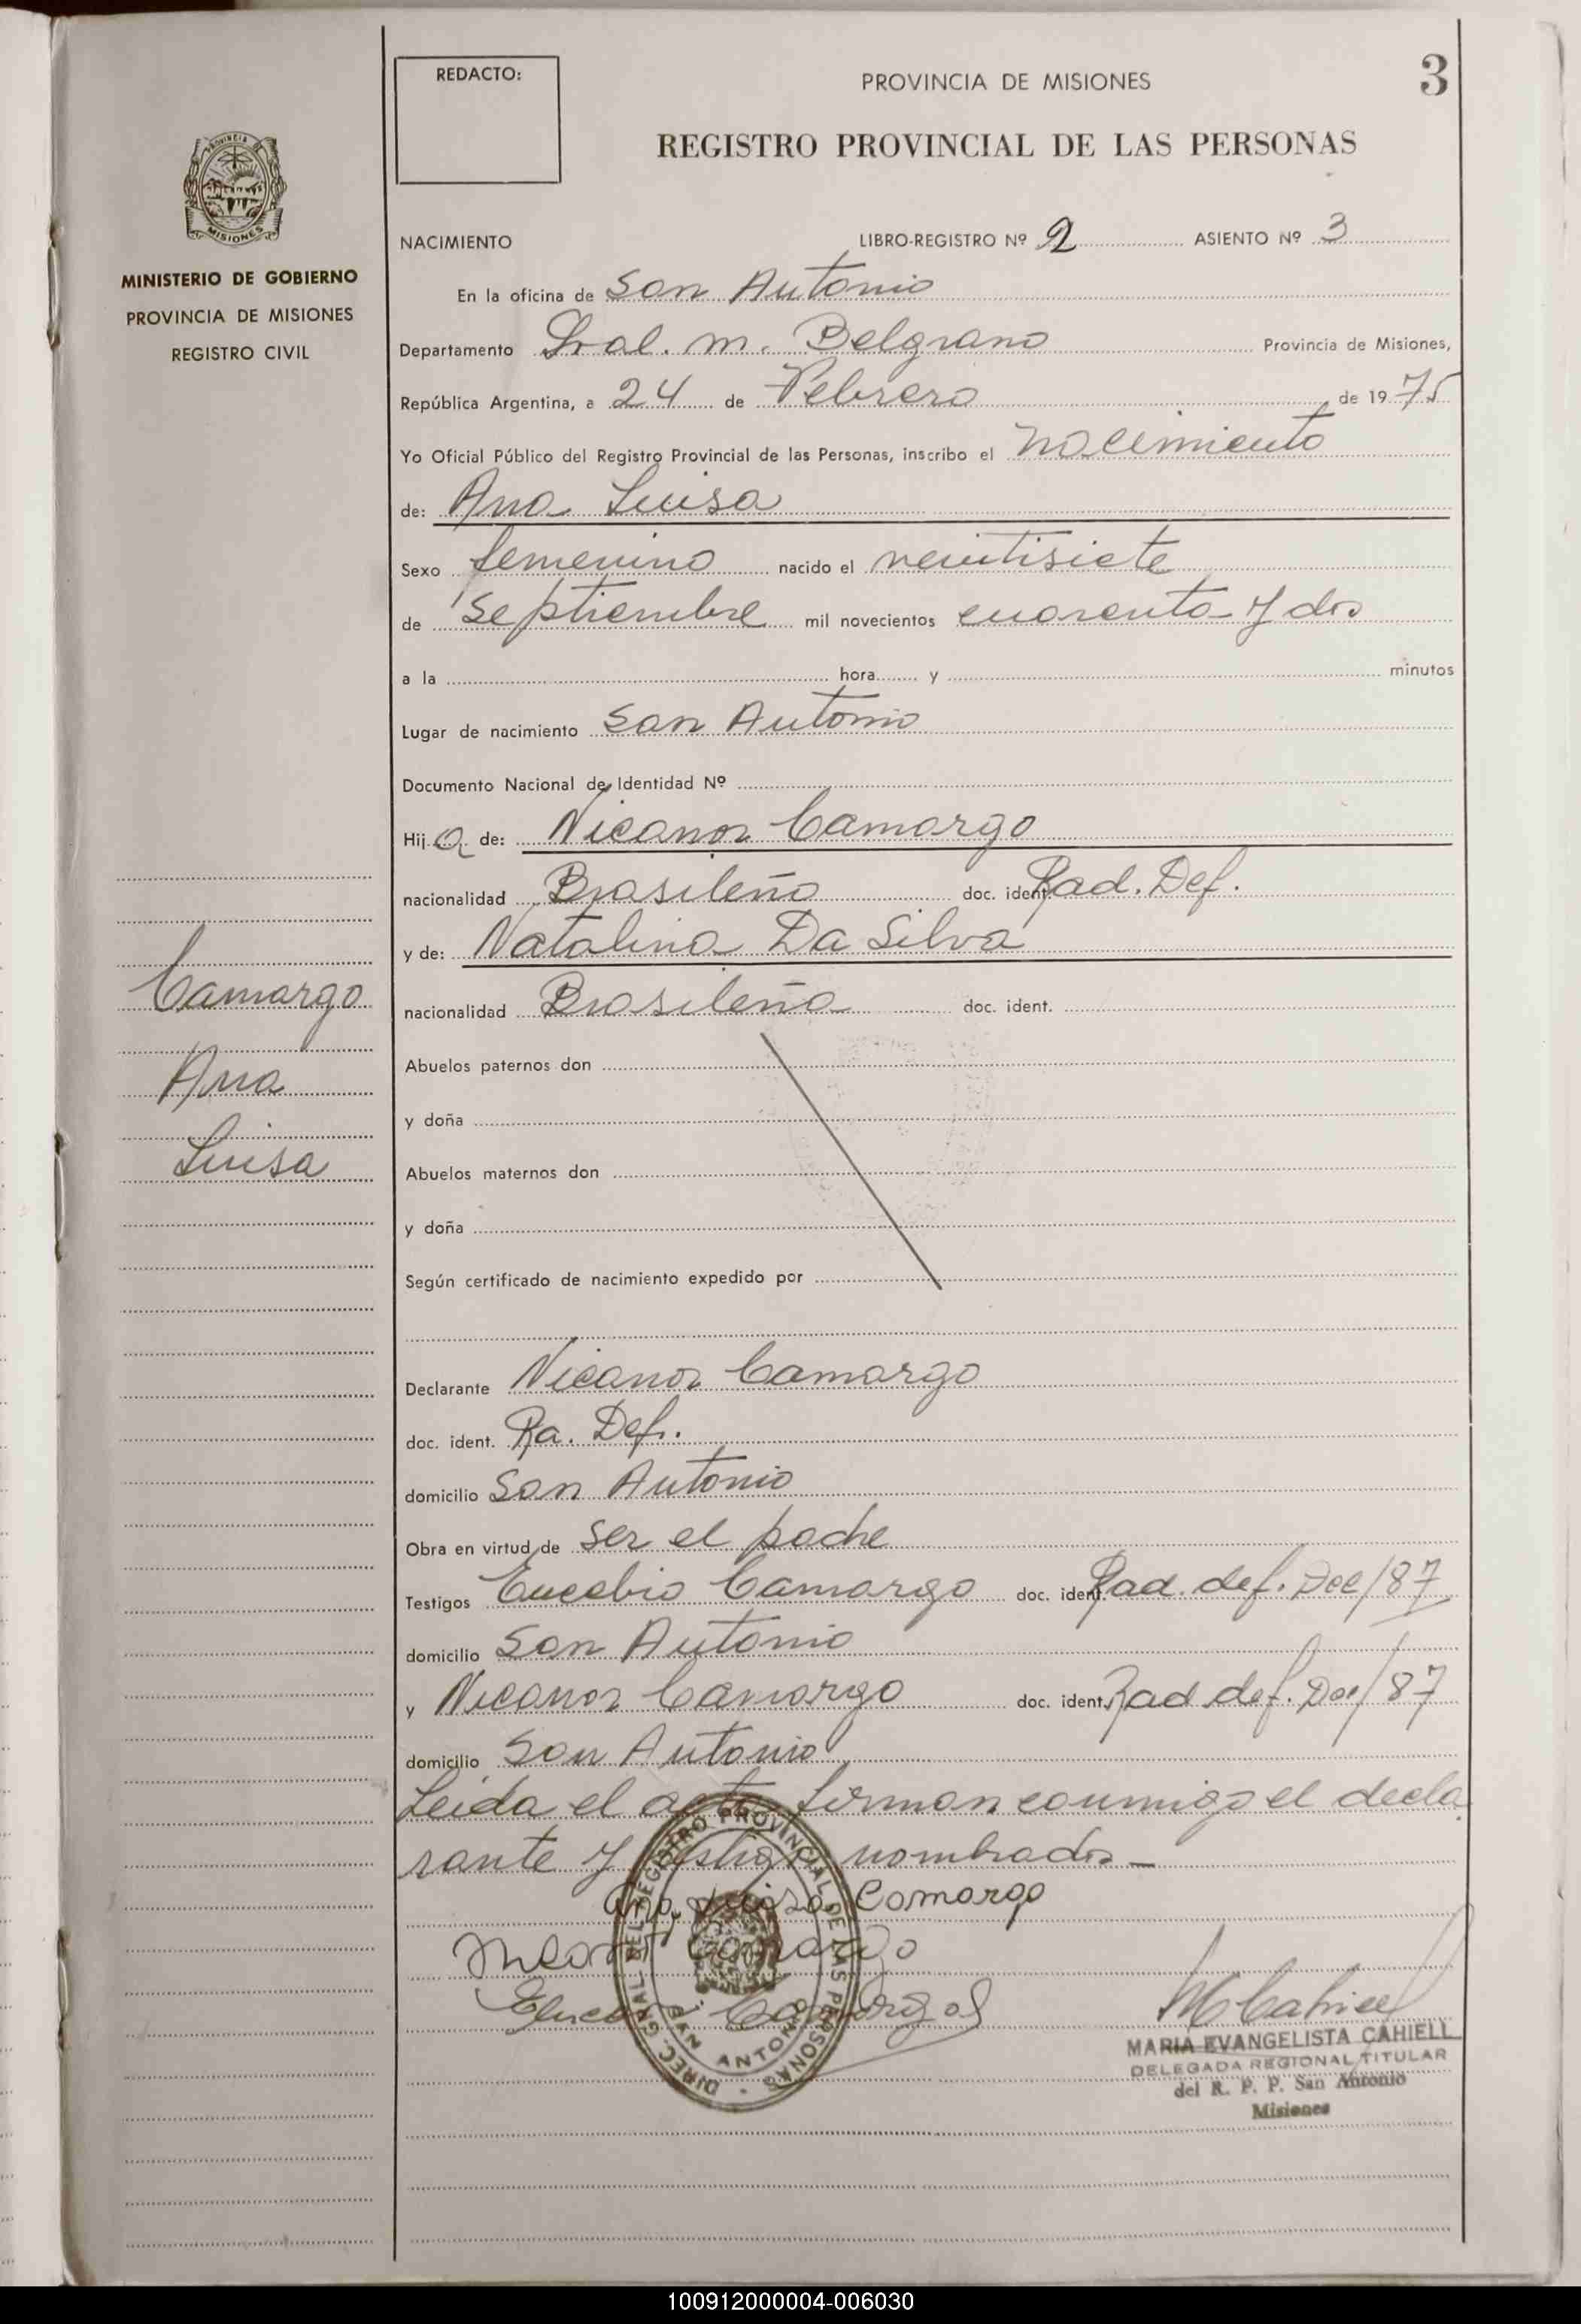 REDACTO:
PROVINCIA DE MISIONES
3
REGISTRO PROVINCIAL DE LAS PERSONAS
PROVINCIA DE
MISIONES
MINISTERIO DE GOBIERNO
PROVINCIA DE MISIONES
REGISTRO CIVIL
NACIMIENTO LIBRO-REGISTRO Nº 2 ASIENTO Nº 3
En la oficina de San Antonio
Departamento Gral. M. Belgrano Provincia de Misiones,
República Argentina, a 24 de Febrero de 1975
Yo Oficial Público del Registro Provincial de las Personas, inscribo el nacimiento
de: Ana Luisa
Sexo femenino nacido el veintisiete
de septiembre mil novecientos cuarenta y dos
a la hora y minutos
Lugar de nacimiento San Antonio
Documento Nacional de Identidad Nº
Hija de: Nicanor Camargo
nacionalidad Brasileño doc. ident. Rad. Def.
y de: Natalina Da Silva
nacionalidad Brasileña doc. ident.
Abuelos paternos don
y doña
Abuelos maternos don
y doña
Según certificado de nacimiento expedido por
Camargo
Ana
Luisa
Declarante Nicanor Camargo
doc. ident. Ra. Def.
domicilio San Antonio
Obra en virtud de ser el padre
Testigos Eucebio Camargo doc. ident. Rad. def. Dec/87
domicilio San Antonio
y Nicanor Camargo doc. ident. Rad def. Dec/87
domicilio San Antonio
Leida el acta firman conmigo el decla
rante y testigos nombrados
Ana Luisa Camargo
Camargo
DIREC. GRAL. DEL REGISTRO PROVINCIAL DE LAS PERSONAS
SAN ANTONIO
MCahiell
MARIA EVANGELISTA CAHIELL
DELEGADA REGIONAL TITULAR
del R. P. P. San Antonio
Misiones
100912000004-006030